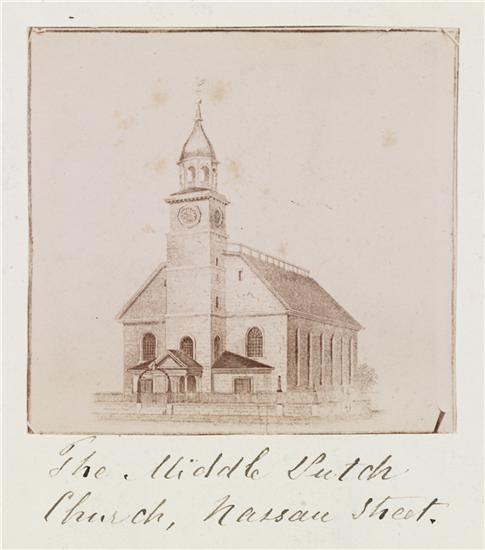 The Middle Dutch
Church, Nassau Street.